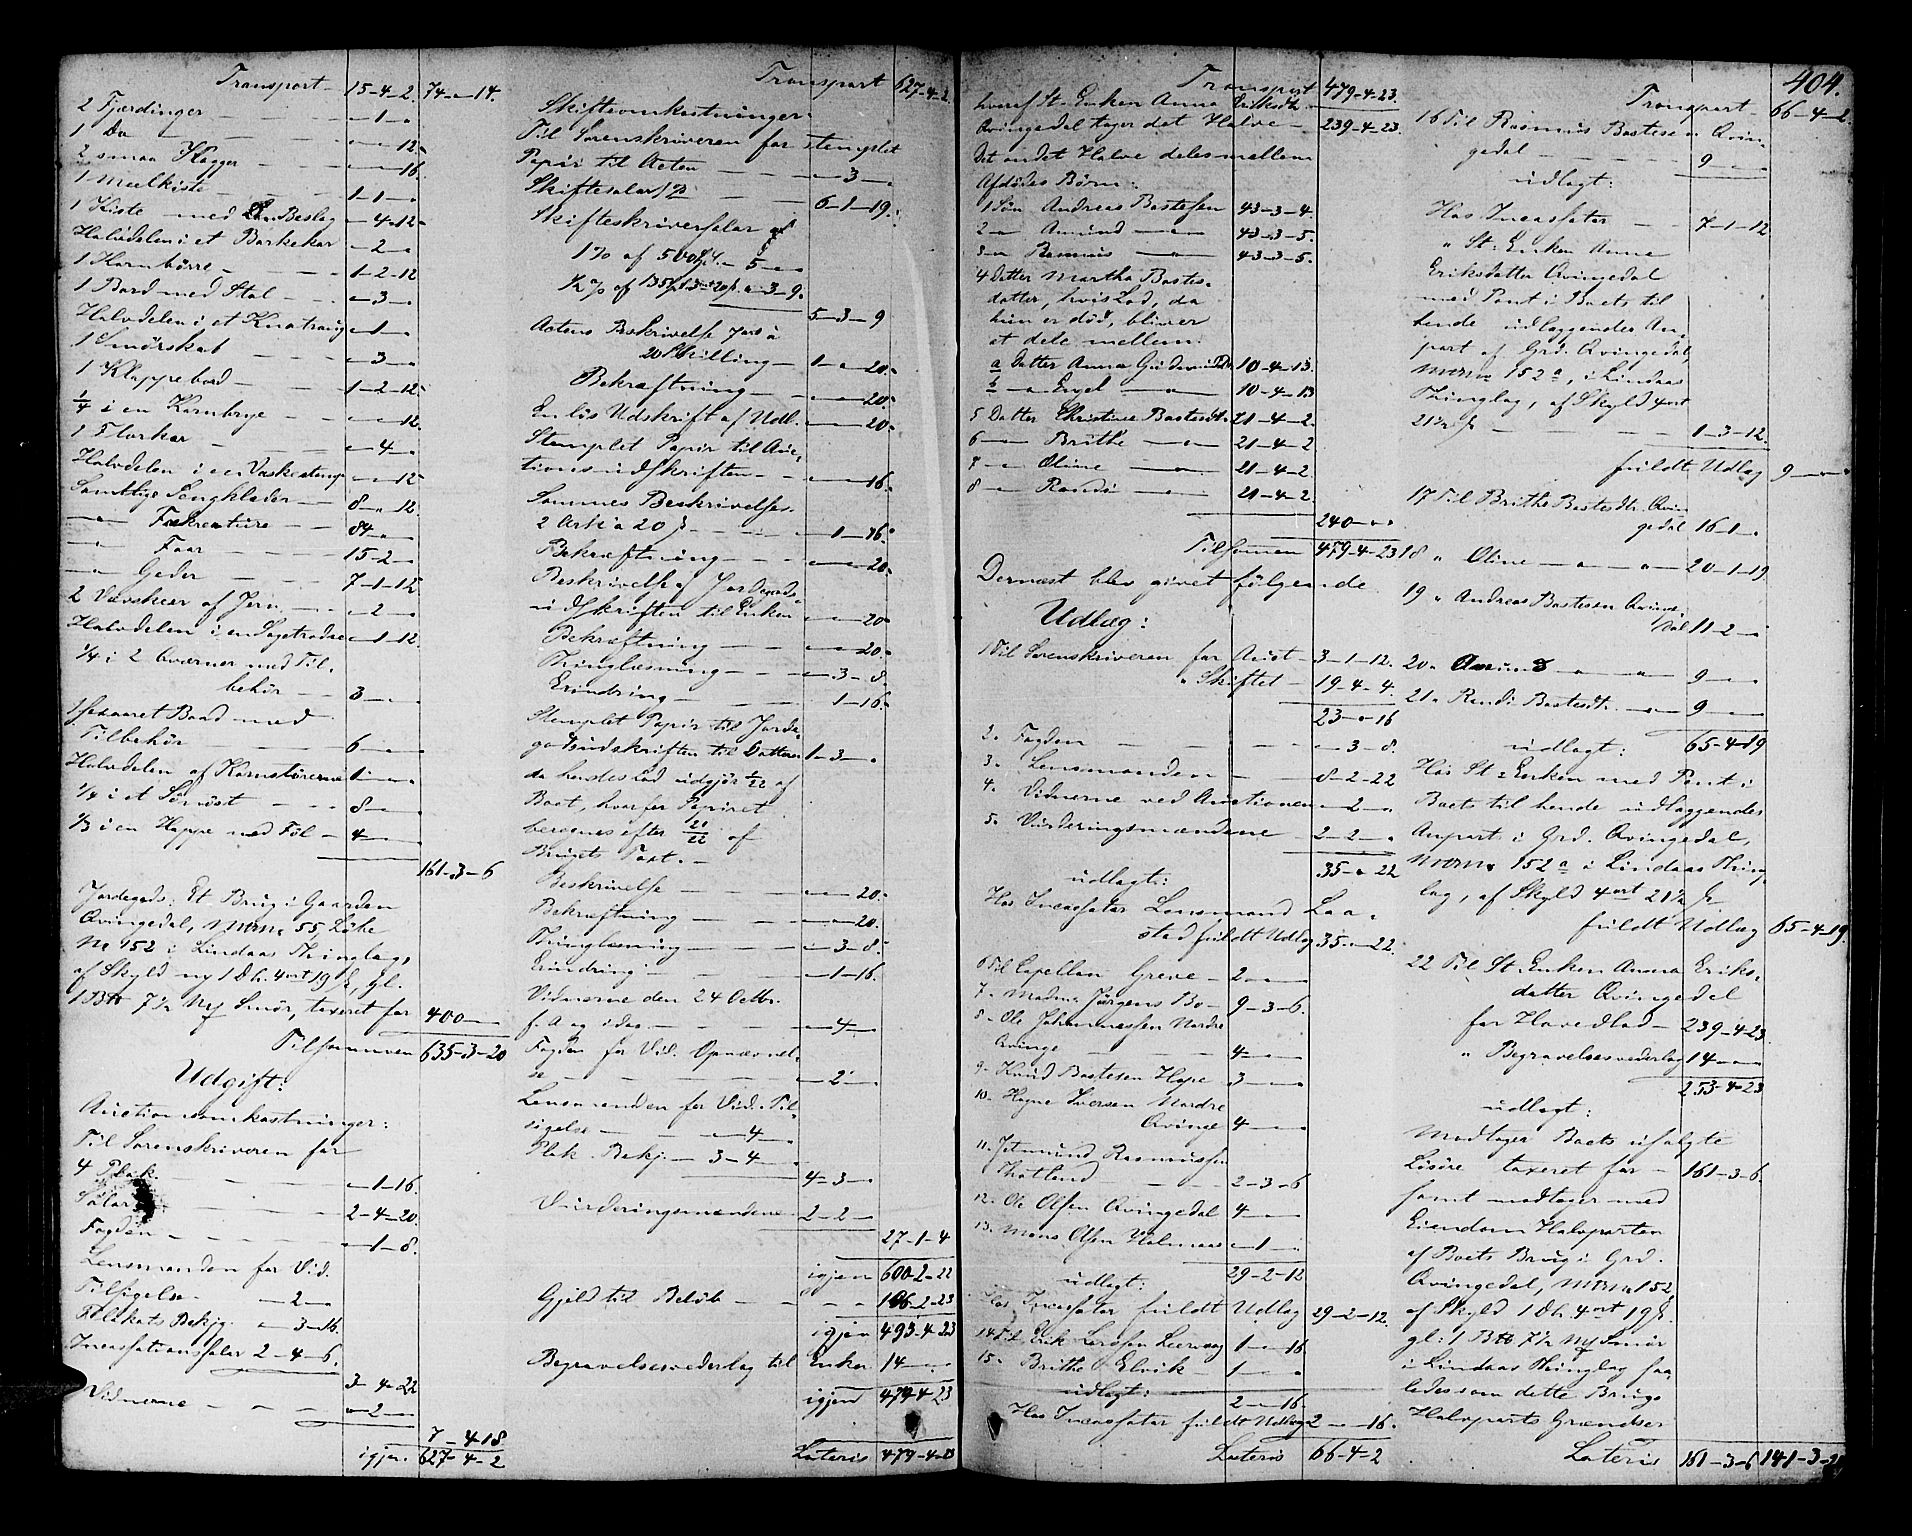 Transport - 15-4-2. 74-"-14.
2 Fjærdinger - - "-1-"
1 Do - - - "-"-12.
2 smaa Klagger - - "-"-16.
1 Meelkiste - - - 1-1-"
1 Kiste med Beslag "-4-12
Halvdelen i et Barkekar "-2-"
1 Kornbörre - - - 1-2-12
1 Bord med Stol - - "-3-"
Halvdelen i et Knatraug "-1-"
1 Smörskab - - - "-3-"
1 Klappebord - - 1-2-12
1/4 i en Kornbrye - - "-"-12.
1 Florkar - - - "-4-"
Halvdelen i en Vaskestamp "-"-12
Samtlige Sengklæder - 8-"-12.
-"- Fækreature - - 84-"-
-"- Faar - - - 15-2-"
-"- Geder - - - 7-1-12
2 Vævskeer af Jern - - "-2-"
Halvdelen i en Sagetrodse "-1-12.
1/4 i 2 Qværner med Til-
behör - - 3-"-"
1 færaaret Baad med
Tilbehör - - - 6-"-"
Halvdelen af Kornstörerne 1-"-"
1/4 i et Sörnöst - - - 8-"-"
1/3 i en Hoppe med Föl - 4-"-"
161-3-6
Jordegods: Et Brug i Gaarden
Qvingedal, Matrn. 55, Löbe
No 152 i Lindaas Thinglag,
af Skyld ny 1 Dlr. 4 ort 19 ß, gl.
1 Btt 7 1/2 Mk Smör, taxeret for 400-"-
Tilsammen 635-3-20
Udgift:
Auctionsomkostninger:
Til Sorenskriveren for
4 Plak. - - - "-1-16.
Salar - - - 2-4-20.
Fogden - - - - "-1-8.
Lensmanden for Vid.
Tilsigelse - "-2-"
Plakats Bekj. - "-3-16.
Incassationssalar 2-4-6.
3-4-22
Vidnerne - - - "-2-"
7-4-18
igjen 627-4-2
Transport 627-4-2
Skifteomkostninger:
Til Sorenskriveren for stemplet
Papir til Acten - - - "-3-"
Skiftesalar 1% 6-1-19.
Skifteskriversalar af
1% af 500 Spd. - 5-"-"
1/2 % af 135 Spd. 3-20 ß. "-3-9.
5-3-9
Actens Beskrivelse 7 Ark à
20 Skilling - 1-"-20.
Bekræftning - - - "-"-20.
En lös Udskrift af Udl. "-"-20.
Stemplet Papir til Auc-
tionsudskriften - - - "-"-16.
Sammes Beskrivelse.
2 Ark à 20 ß - - - "-1-16.
Bekræftning - - - "-"-20.
Beskrivelse af Jordegods-
udskriften til Enken "-"-20.
Bekræftning - - "-"-20.
Thinglæsning - - - "-3-8.
Erindring - - - "-1-16.
Stemplet Papir til Jorde-
godsudskriften til Datteren 1-3-"
da hendes Lod udgjör 1/22 af
Boet, hvorfor Papiret
beregnes efter 21/22 af
Brugets Taxt. -
Beskrivelse - - - "-"-20.
Bekræftning - - - "-"-20.
Thinglæsning - - - "-3-8.
Erindring - - - "-1-16.
Vidnerne den 24 Octbr.
f. A og idag - - - - "-4-"
Fogden for Vid. Opnævnel-
se - - - - "-2-"
Lensmanden for Vid. Til-
sigelse - - - "-4-"
Plak. Bekj. - 3-4-"
4-3-"
Vurderingsmændene 2-2-"
27-1-4
igjen 600-2-22
Gjeld til Belöb - - - 106-2-23
igjen 493-4-23
Begravelsesvederlag til Enken 14-"-"
igjen 479-4-23
Lateris 479-4-23
404.
Transport 479-4-23.
hvoraf St. Enken Anna Eriksdtr.
Qvingedal tager det Halve - 239-4-23.
Det andet Halve deles mellem
Afdödes Börn:
1 Sön Andreas Bastesen 43-3-4.
2 -"- Amund -"- 43-3-5.
3 -"- Rasmus -"- 43-3-5.
4 Datter Martha Bastes-
datter, hvis Lod, da
hun er död, bliver
at dele mellem:
a Datter Anna Gudmundsd. 10-4-13.
b -"- Engel -"- 10-4-13
5 Datter Christine Bastesdtr. 21-4-2.
6 -"- Brithe -"- 21-4-2
7 -"- Oline -"- 21-4-2
8 -"- Randi -"- 21-4-2.
240-"-"
Tilsammen 479-4-23
Dernæst blev givet fölgende
Udlæg:
1 Til Sorenskriveren for Auct. - 3-1-12.
" Skiftet - 19-4-4.
23-"-16
2. Fogden - - - - "-3-8.
3. Lensmanden - - 8-2-22
4. Vidnerne ved Auctionen "-2-"
5. Vurderingsmændene 2-2-"
35-"-22
udlagt:
Hos Incassator Lensmand Laa-
stad fuldt Udlæg 35-"-22.
6 Til Capellan Greve - 2-"-"
7. Madme. Jörgens Bo - 9-3-6.
8. Ole Johannessen Nordre
Qvinge - - - 4-"-"
9. Knud Bastesen Hope 3-"-"
10. Hagne Iversen Nordre
Qvinge 4-"-"
11. Jetmund Rasmussen
Hatland - - - 2-3-6
12. Ole Olsen Qvingedal 4-"-"
13. Mons Olsen Holmaas "-1-"
29-2-12
udlagt:
Hos Incassator fuldt Udlæg 29-2-12.
14 Til Erik Larssen Leervaag 1-"-16
15. Brithe Elvik - 1-"-"
udlagt: 2-"-16.
Hos Incassator fuldt Udlæg 2-"-16.
Lateris 66-4-2
Transport 66-4-2.
16 Til Rasmus Bastesen Qvin-
gedal - - - - 9-"-"
udlagt:
Hos Incassator - - 7-1-12.
" St. Enken Anna
Eriksdatter Qvingedal
med Pant i Boets til
hende udlæggendes An-
part af Grd. Qvingedal,
Matrn. 152 a, i Lindaas
Thinglag, af Skyld 4 ort
21 1/2 ß - - - - 1-3-12.
fuldt Udlæg 9-"-"
17 Til Brithe Bastesdtr. Qvin-
gedal 16-1-"
18 " Oline -"- -"- 20-1-19
19 " Andreas Bastesen Qvinge-
dal 11-2-"
20 " Amund -"- -"- 9-"-"
21 " Randi Bastesdtr. -"- 9-"-"
udlagt: 65-4-19
Hos St. Enken med Pant i
Boets til hende udlæggendes
Anpart i Grd. Qvingedal,
Matrn. 152 a i Lindaas Thing-
lag, af Skyld 4 ort 21 1/2 ß
fuldt Udlæg 65-4-19.
22 Til St. Enken Anna Eriks-
datter Qvingedal
for Hovedlod - 239-4-23.
" Begravelsesvederlag 14-"-"
253-4-23
udlagt:
Modtager Boets usolgte
Lösöre taxeret for - 161-3-6.
samt modtager med
Eiendom Halvparten
af Boets Brug i Grd.
Qvingedal, Matrn. 152,
af Skyld 1 Dlr. 4 ort 19 ß.
gl. 1 Btt 7 1/2 Mk Smör
i Lindaas Thinglag saa-
ledes som dette Brugs
Halvparts Grændser
Lateris 161-3-6 141-3-21